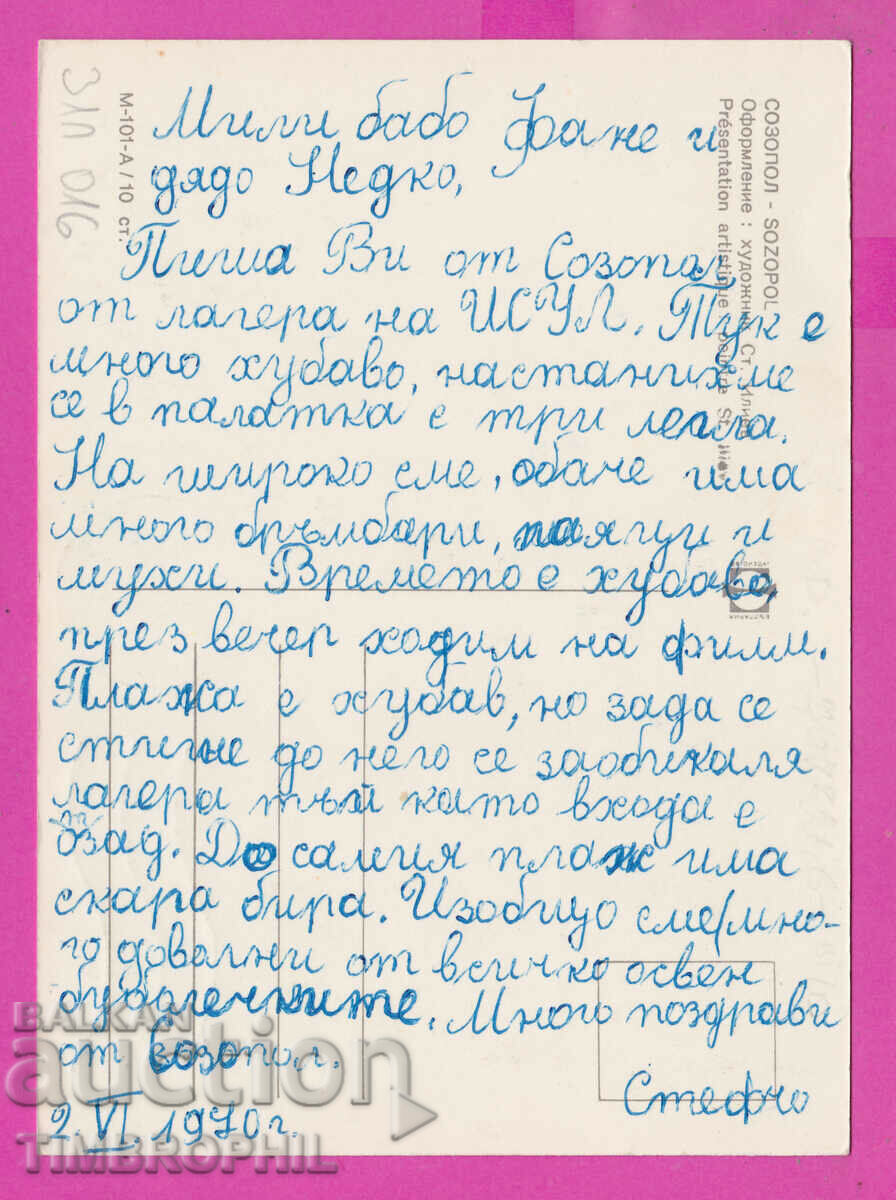 Мили бабо Фане и
дядо Недко,
Пиша Ви от Созопол
от лагера на ИСУЛ. Тук е
много хубаво, настанихме
се в палатка с три легла.
На широко сме, обаче има
много бръмбари, паяци и
мухи. Времето е хубаво,
през вечер ходим на филм.
Плажа е хубав, но зада се
стигне до него се заобикаля
лагера тъй като входа е
отзад. До самия плаж има
скара бира. Изобщо сме/мно-
го доволни от всичко освен
бубулечките. Много поздрави
от Созопол.
Стефчо
2.VI.1970 г.
31П 016
М-101-А / 10 ст.
СОЗОПОЛ - SOZOPOL
Оформление : художник Ст. Илиев
Présentation artistique peintre St. Iliev
БЪЛГАРИЯ
BALKAN
auction
TIMBROPHIL